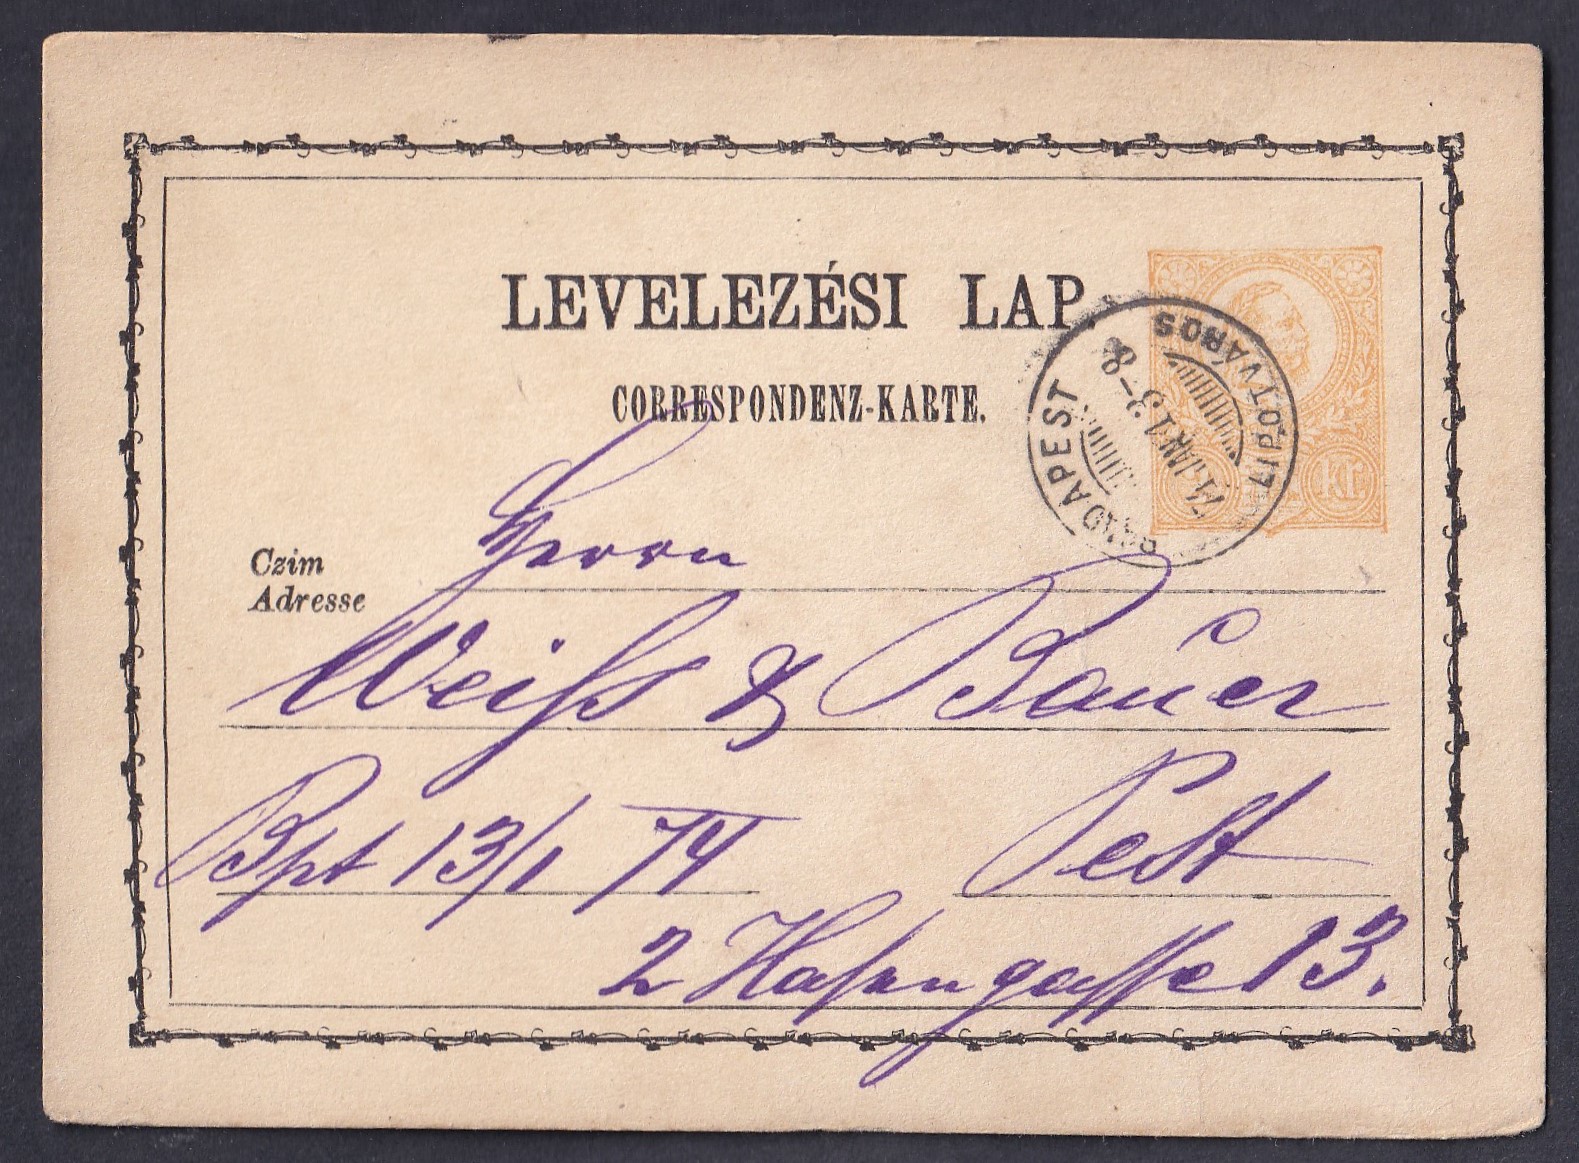 LEVELEZÉSI LAP.
CORRESPONDENZ-KARTE.
BUDAPEST LIPÓTVÁROS
74. JAN 13
3-8
KR
Czim
Adresse
Herrn
Weiss & Bauer
Bpt 13/1 74
Pest
2 Hasengasse 13.